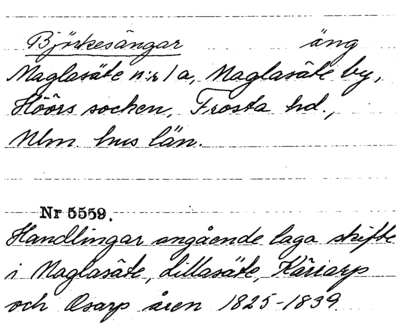 Björkesängar äng
Maglasäte n:r 1a, Maglasäte by,
Höörs socken, Frosta hd.,
Mlm. hus län.
Nr 5559.
Handlingar angående laga skifte
i Maglasäte, Lillasäte, Käriarp
och Osarp åren 1825-1839.